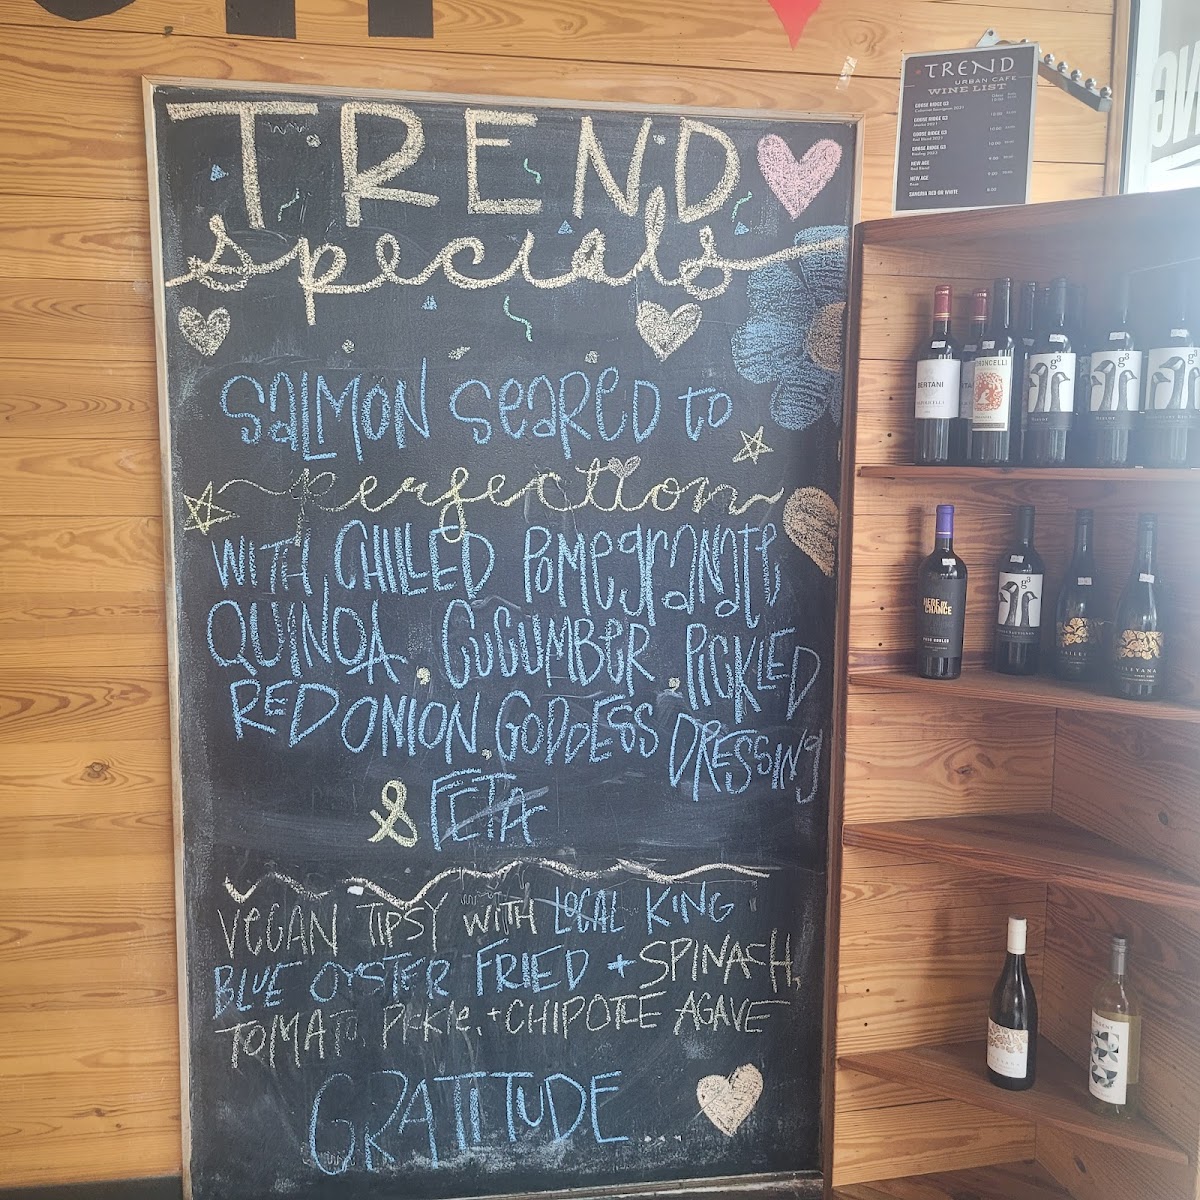 TREND
specials
SALMON SEARED to
perfection
WITH CHILLED POMEGRANATE,
QUINOA, CUCUMBER, PICKLED
RED ONION, GODDESS DRESSING
& FETA
VEGAN TIPSY WITH LOCAL KING
BLUE OYSTER FRIED + SPINACH,
TOMATO, PICKLE, + CHIPOTLE AGAVE
GRATITUDE ...
TREND
URBAN CAFE
WINE LIST
GOOSE RIDGE G3
GOOSE RIDGE G3
GOOSE RIDGE G3
GOOSE RIDGE G3
NEW AGE
NEW AGE
SANGRIA RED OR WHITE
BERTANI
g3
g3
g3
HERE BY
CHANCE
g3